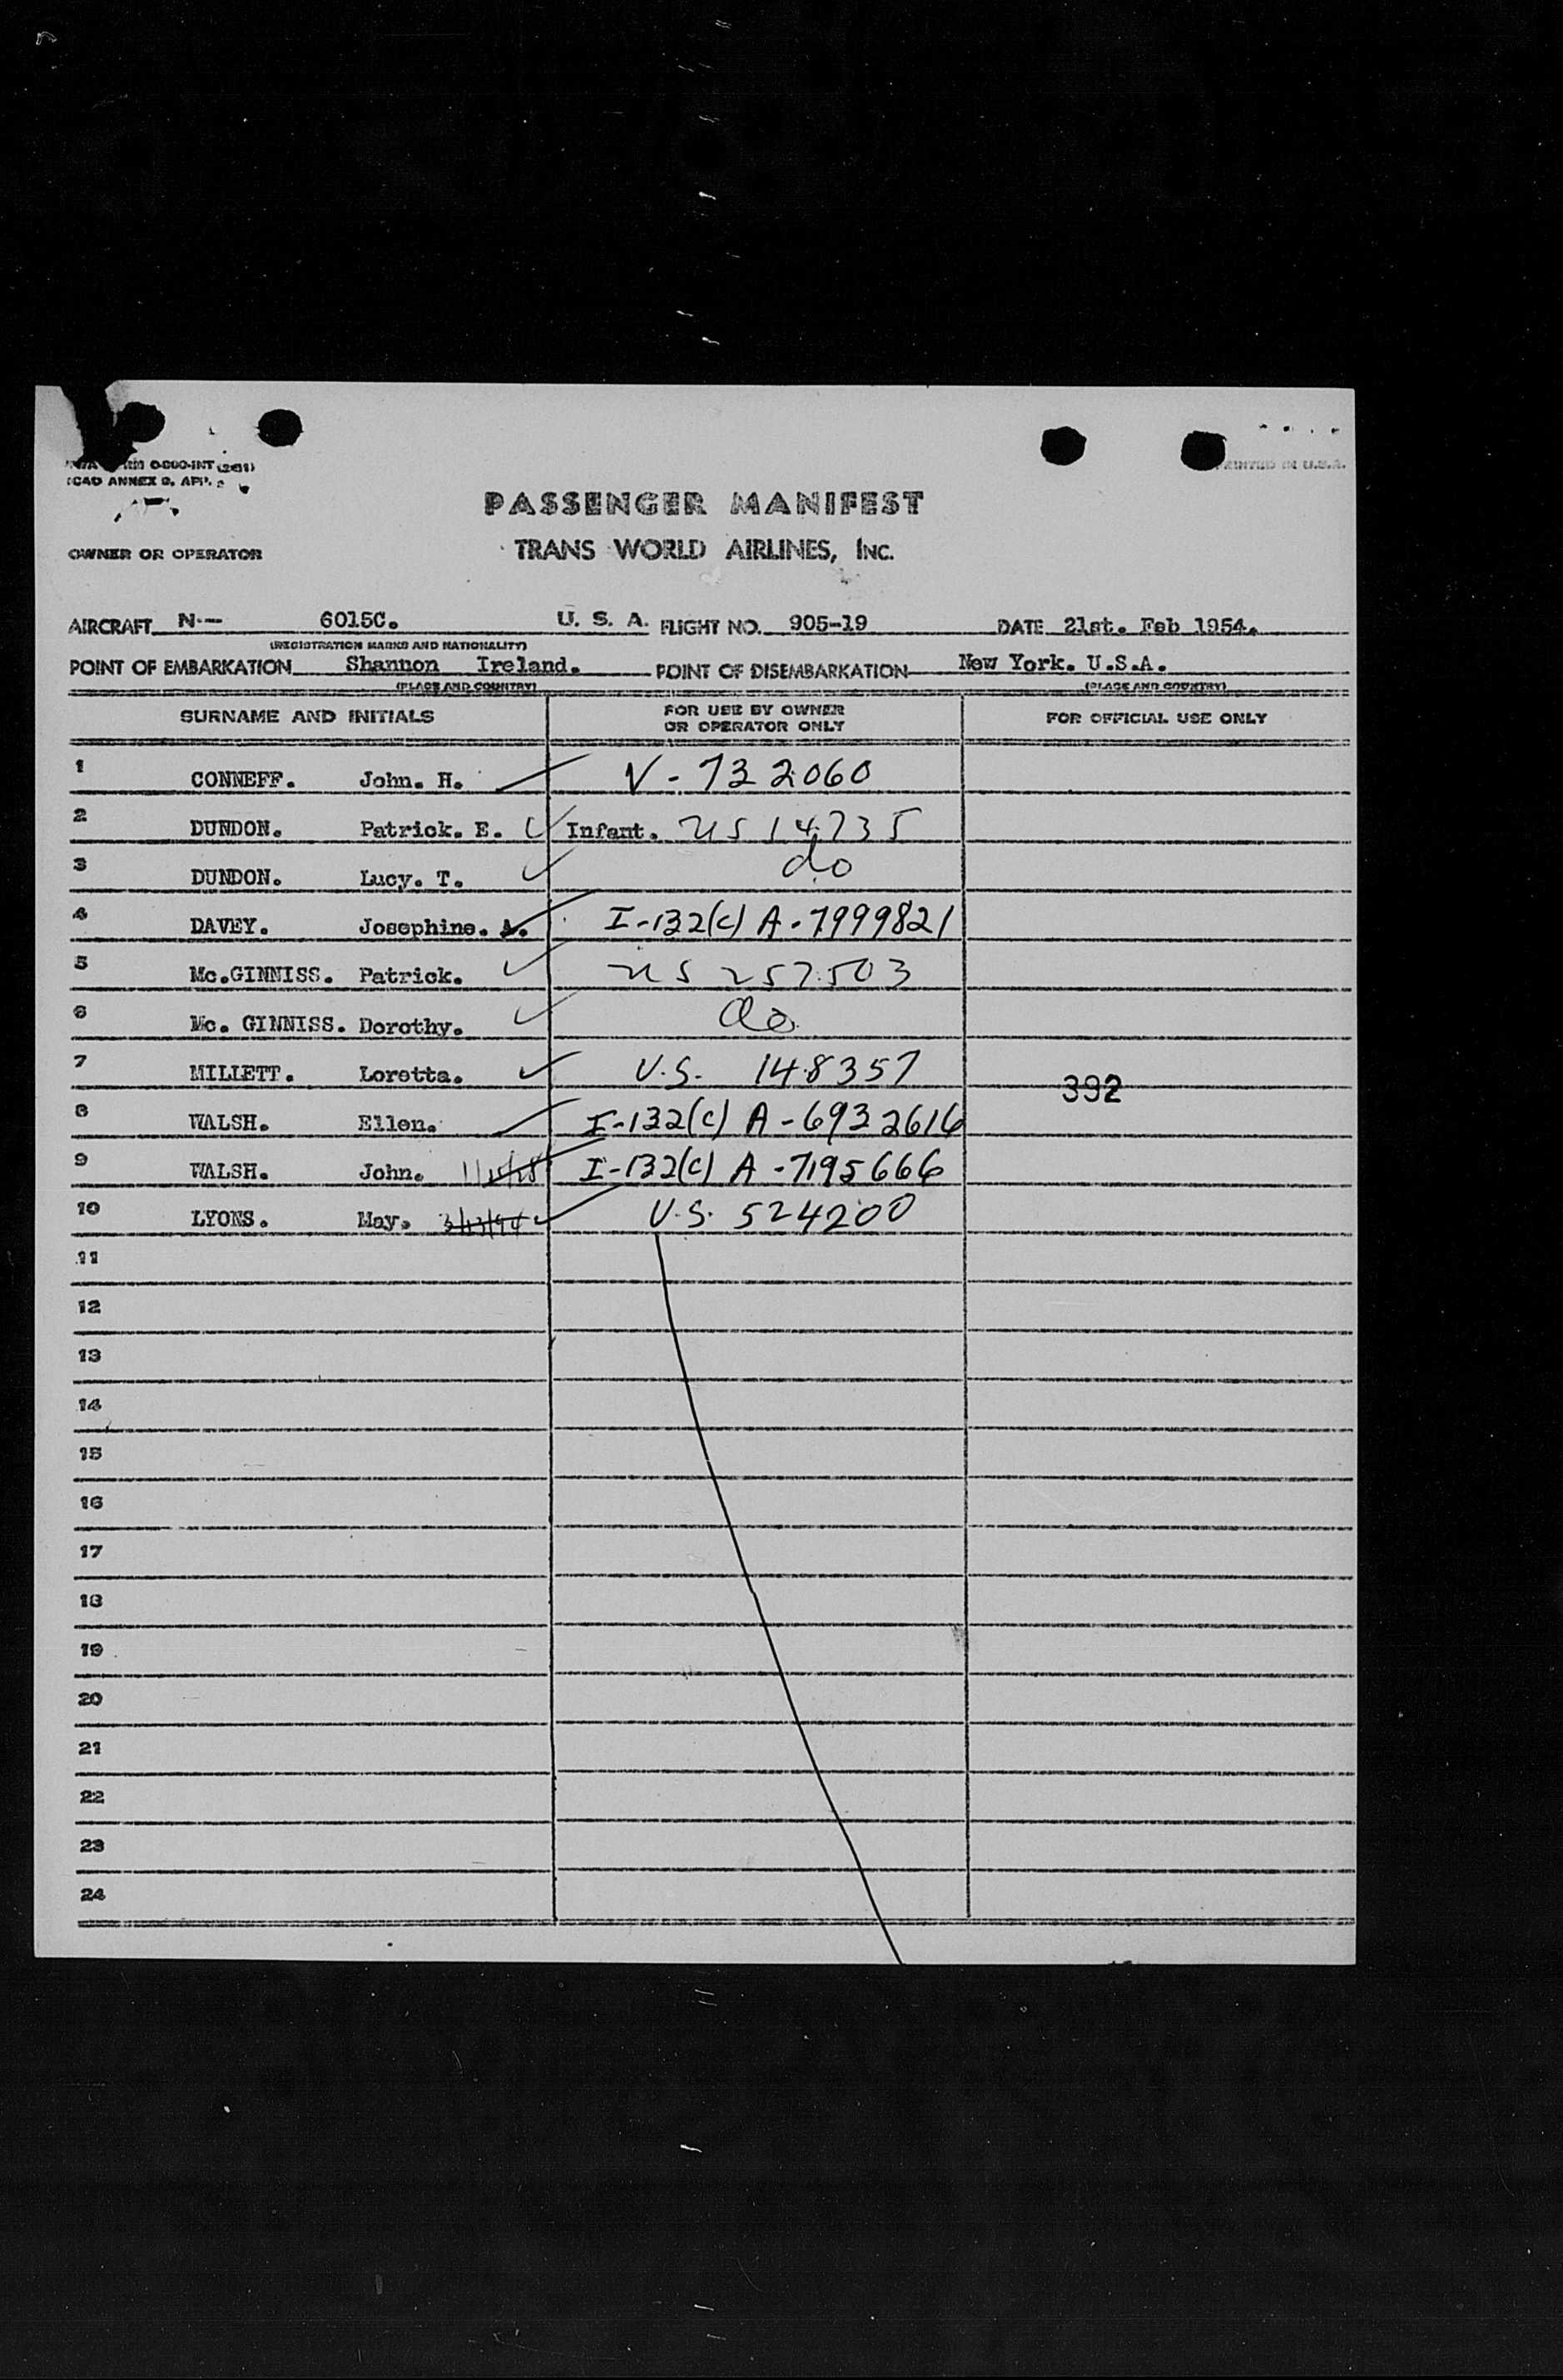 ICAO ANNEX 9, APP. 2
PRINTED IN U.S.A.
PASSENGER MANIFEST
OWNER OR OPERATOR TRANS WORLD AIRLINES, INC.
AIRCRAFT N-- 6015C. U. S. A. FLIGHT NO. 905-19 DATE 21st. Feb 1954.
(REGISTRATION MARKS AND NATIONALITY)
POINT OF EMBARKATION Shannon Ireland. POINT OF DISEMBARKATION New York. U.S.A.
(PLACE AND COUNTRY) (PLACE AND COUNTRY)
SURNAME AND INITIALS FOR USE BY OWNER OR OPERATOR ONLY FOR OFFICIAL USE ONLY
1 CONNEFF. John. H. V-732060
2 DUNDON. Patrick. E. Infant. US 14735
3 DUNDON. Lucy. T. do
4 DAVEY. Josephine. A. I-132(c) A-7999821
5 Mc.GINNISS. Patrick. US 257503
6 Mc. GINNISS. Dorothy. do
7 MILLETT. Loretta. U.S. 148357
392
8 WALSH. Ellen. I-132(c) A-6932616
9 WALSH. John. I-132(c) A-7195666
10 LYONS. May. U.S. 524200
11
12
13
14
15
16
17
18
19
20
21
22
23
24